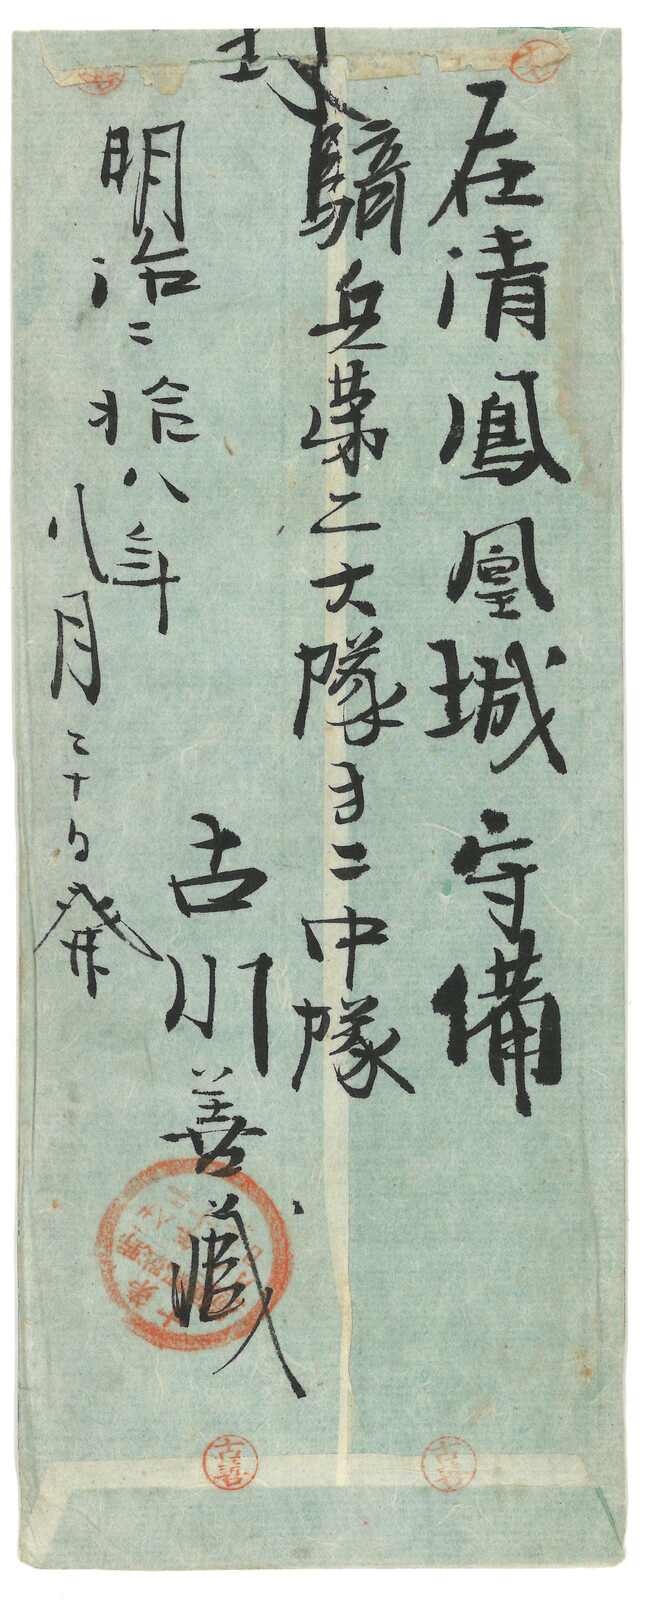 在清鳳凰城守備
騎兵第二大隊才二中隊
古川善蔵
明治二拾八年
八月二十日発
封
古善
古善